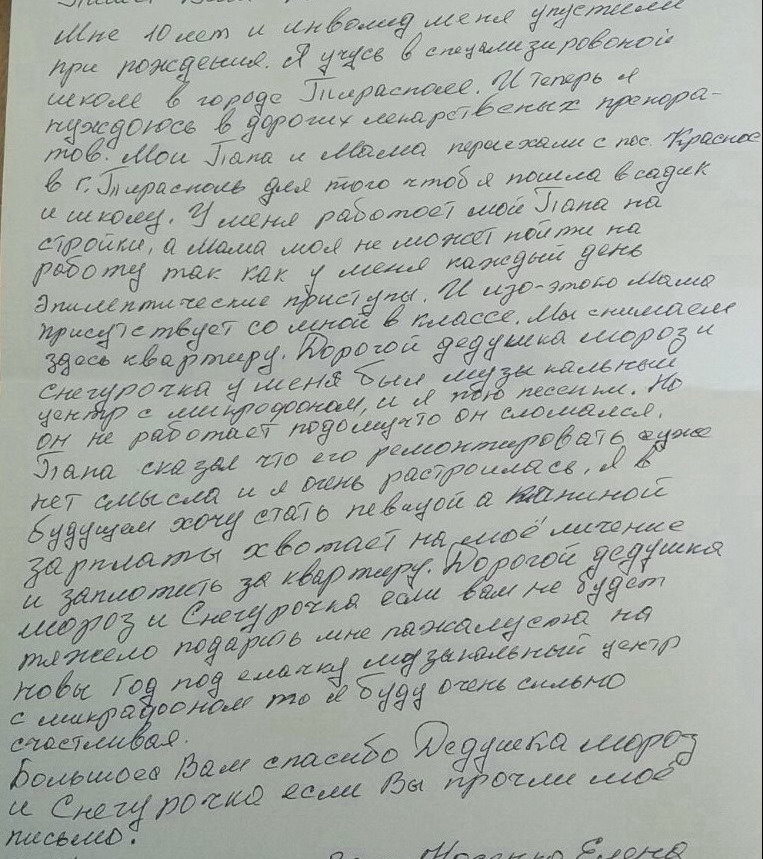 Мне 10 лет и инволид меня упустили
при рождения. Я учусь в специализировоной
школе в городе Тирасполе. И теперь я
нуждоюсь в дорогих лекарственых препора-
тов. Мои Папа и Мама переехали с пос. Красное
в г. Тирасполь для того чтоб я пошла в садик
и школу. У меня работоет мой Папа на
стройки, а Мама моя не может пойти на
работу так как у меня каждый день
эпилептические приступы. И изо-этого Мама
присутствует со мной в классе. Мы снимаем
здесь квартиру. Дорогой дедушка мороз и
снегурочка у меня был музыкальный
центр с микрофоном, и я пою песенки. Но
он не работает подомучто он сломался.
Папа сказал что его ремонтировать уже
нет смысла и я очень растроилась. Я в
будущем хочу стать певицой а папиной
зарплаты хвотает на моё личение
и заплотить за квартиру. Дорогой дедушка
мороз и Снегурочка если вам не будет
тяжело подарить мне пажалуста на
новы Год под елачку музыкальный центр
с микрафоном то я буду очень сильно
счастливая.
Большоеа Вам спасибо Дедушка мороз
и Снегурочка если Вы прочли моё
письмо.
Елена